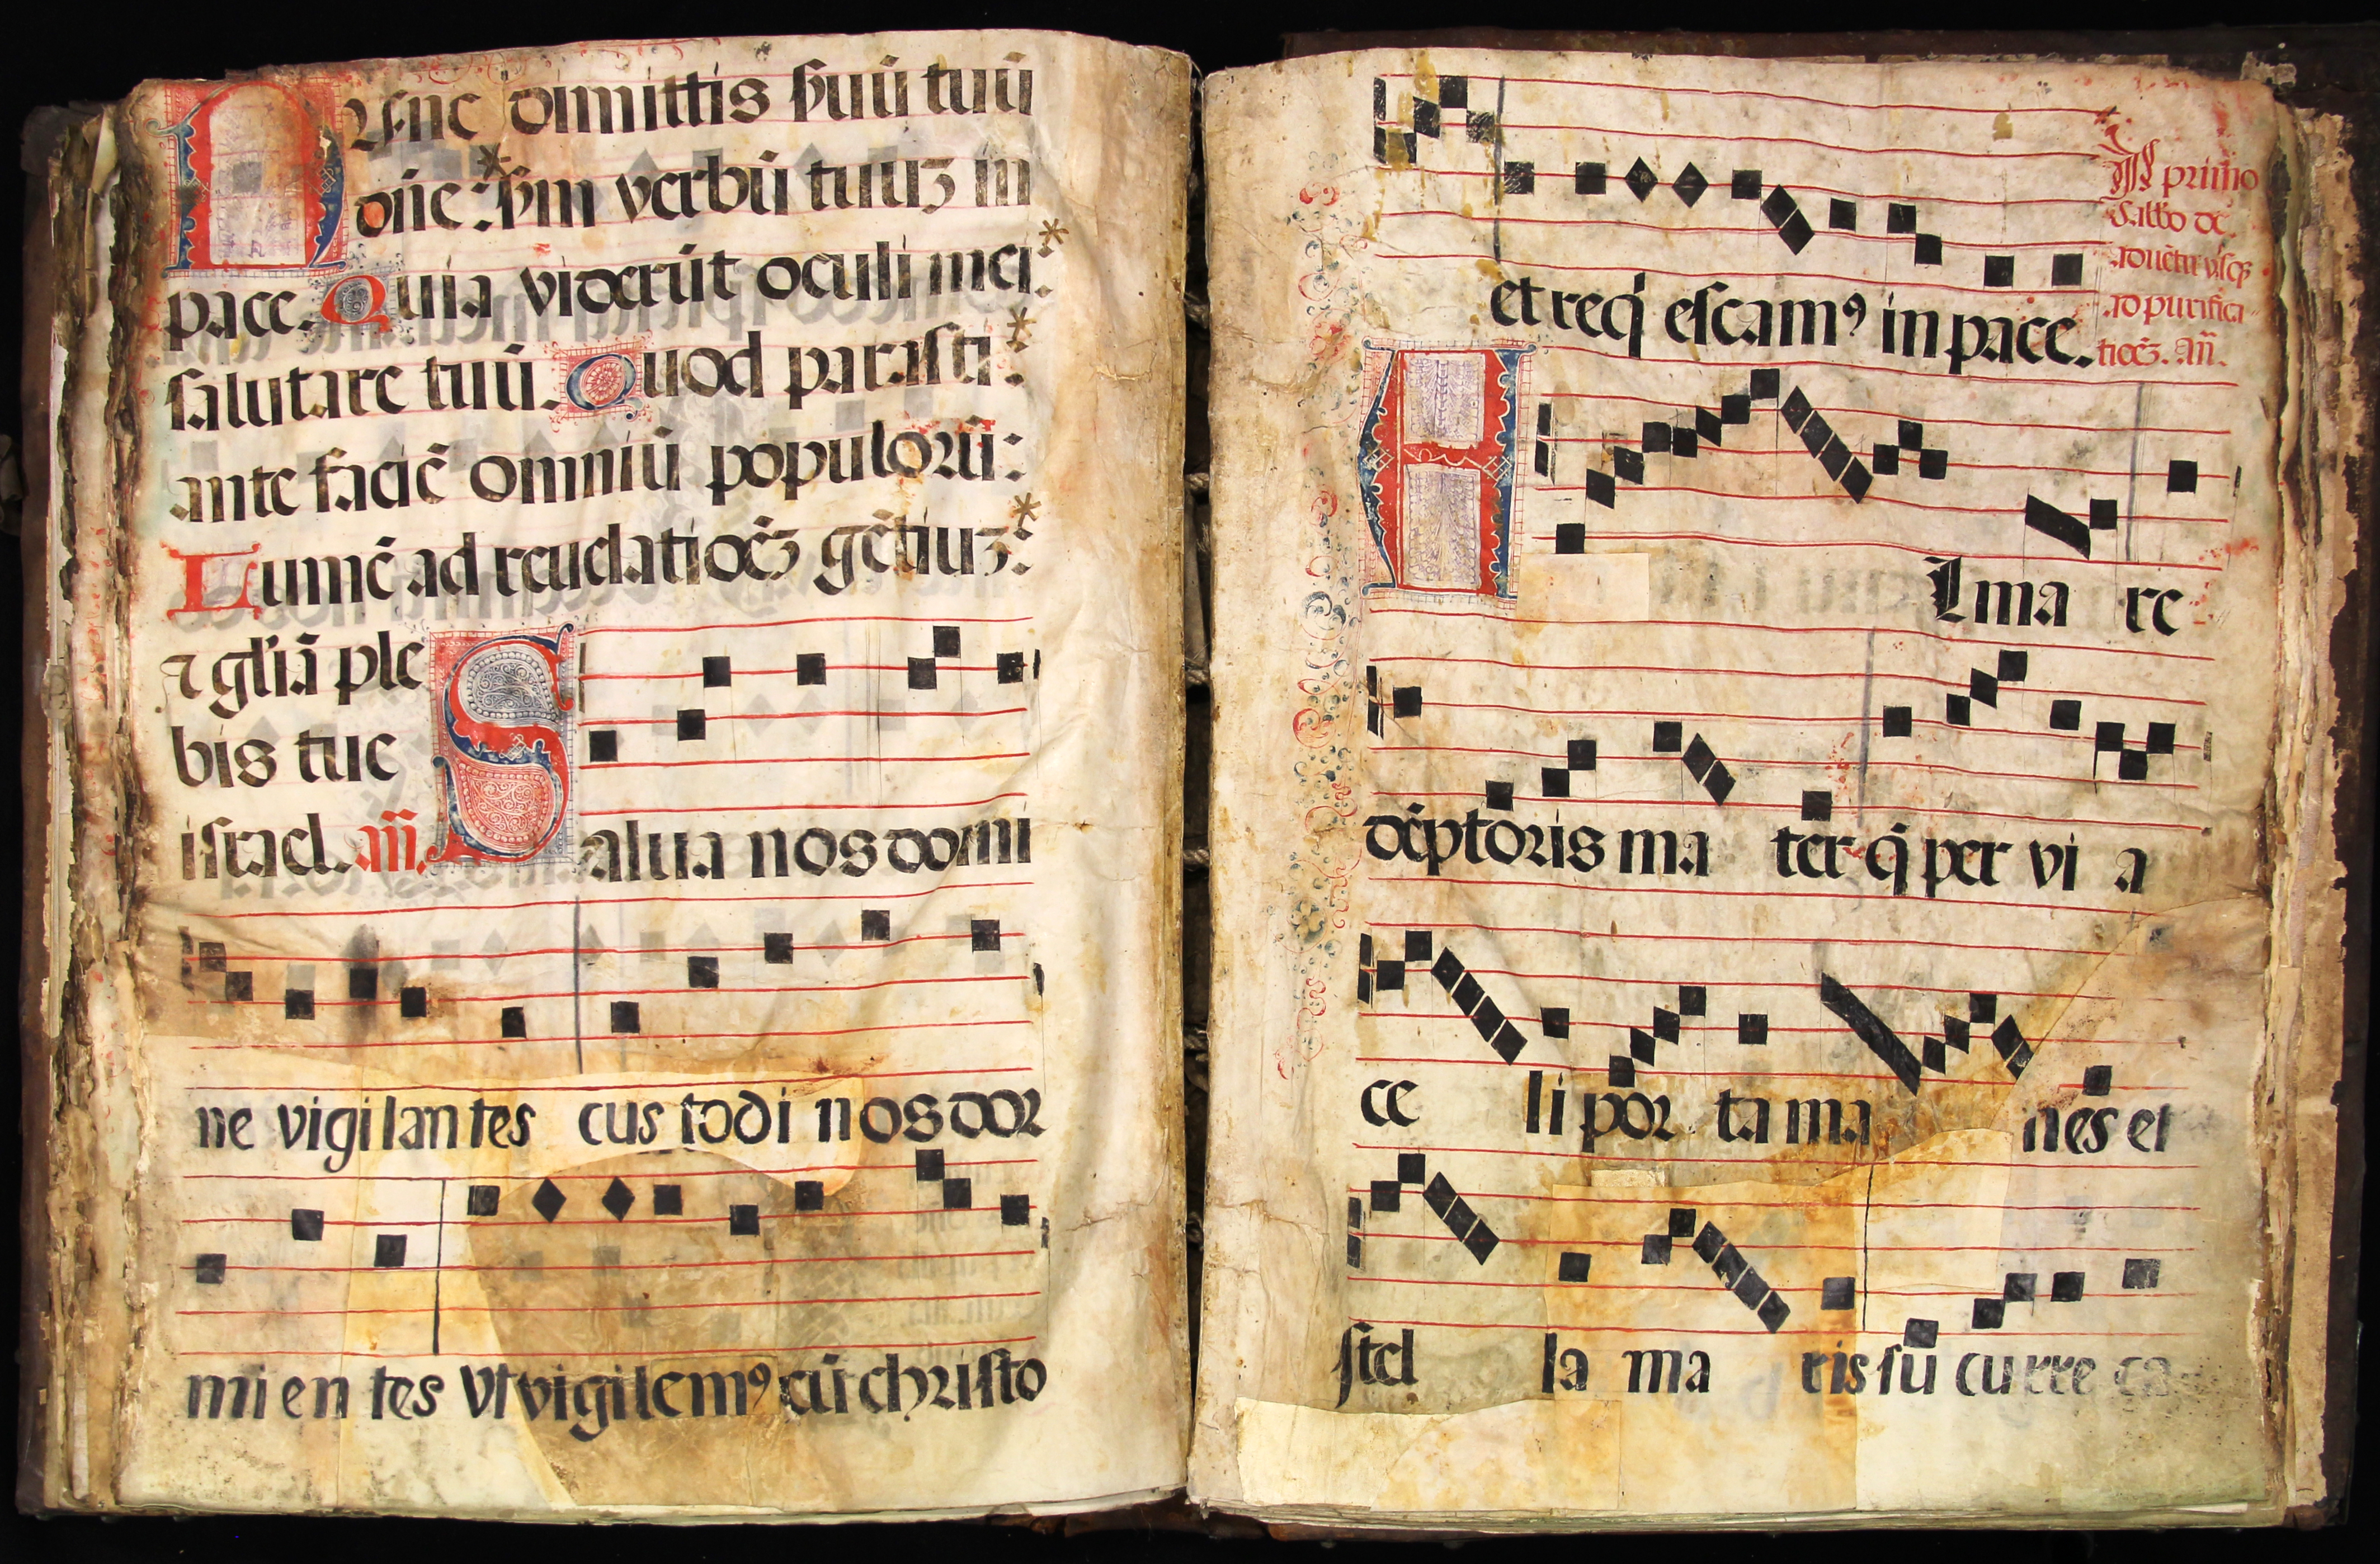 Nunc dimittis ẜuū tuū
dn̄e: ẜm verbū tuuʒ in
pace. Quia viderūt oculi mei:
salutare tuū. Quod parasti:
ante faciē omniū populorū:
Lumē ad reuelatioēʒ gētiuʒ:
⁊ gl'iā ple
bis tue
israel. an̄.
Salua nos domi
ne vigilantes custodi nos dor
mientes vt vigilemꝰ cū christo
et reqͥescamꝰ in pace.
primo
Sabbo de
aduētu vsqꝫ
ad purifica
tioēʒ. an̄.
Alma re
dēptoris mater q̄ per via
celi porta manes et
stella maris sucurre ca